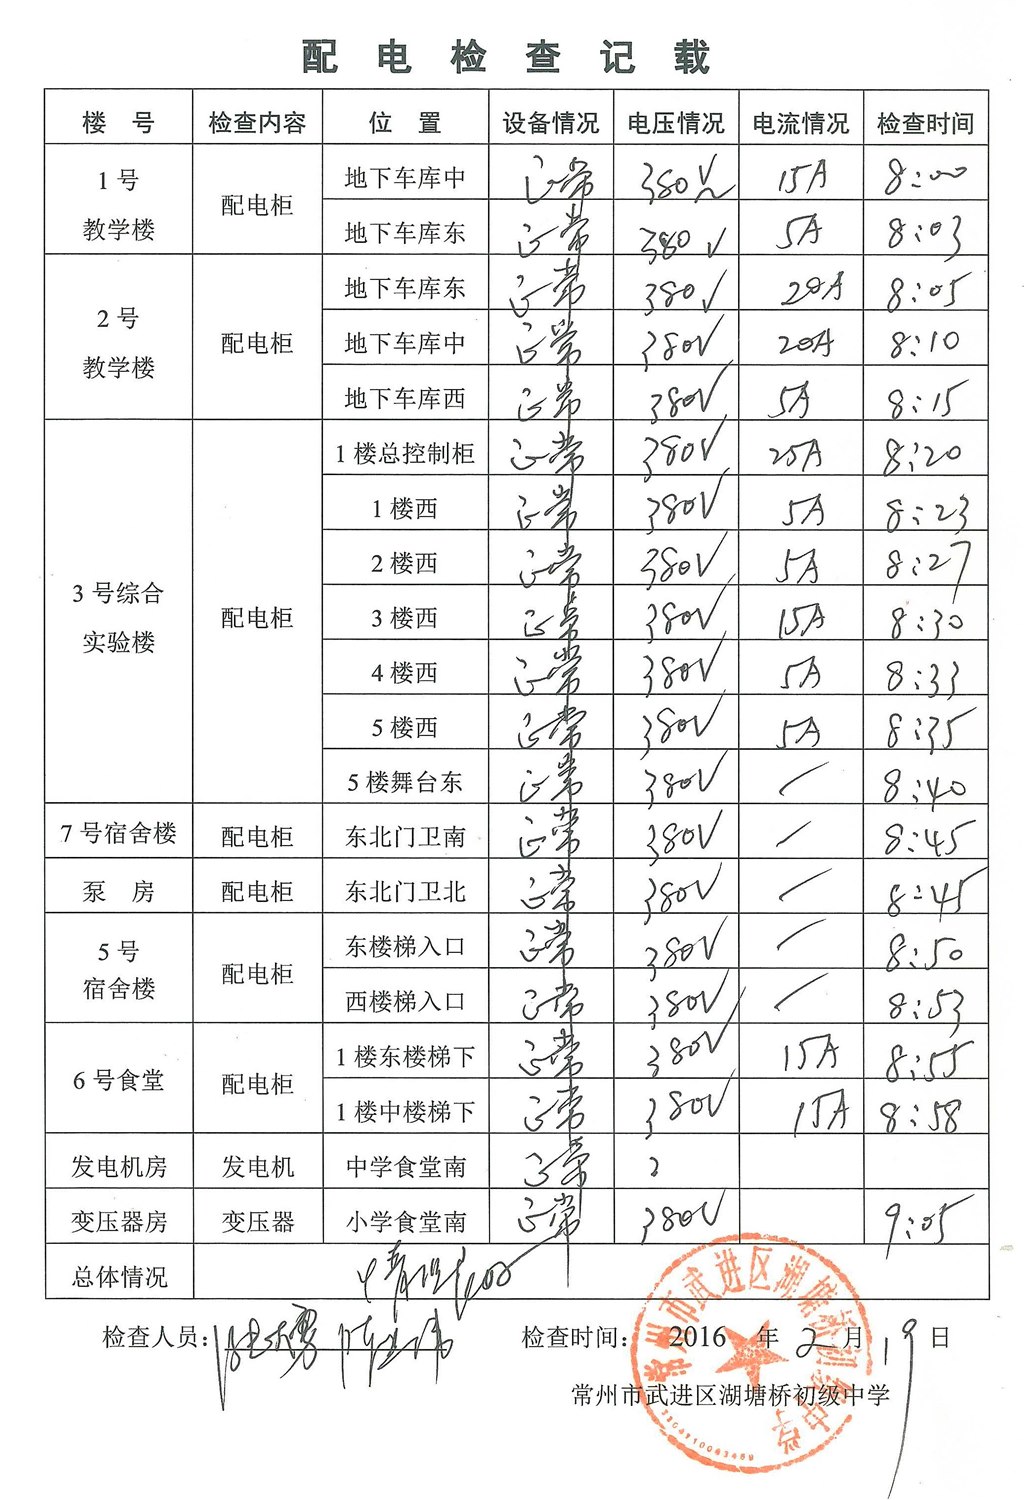 配 电 检 查 记 载
楼 号 检查内容 位 置 设备情况 电压情况 电流情况 检查时间
1号 教学楼 配电柜 地下车库中 正常 380V 15A 8:00
地下车库东 正常 380V 5A 8:03
2号 教学楼 配电柜 地下车库东 正常 380V 20A 8:05
地下车库中 正常 380V 20A 8:10
地下车库西 正常 380V 5A 8:15
3号综合 实验楼 配电柜 1楼总控制柜 正常 380V 25A 8:20
1楼西 正常 380V 5A 8:23
2楼西 正常 380V 5A 8:27
3楼西 正常 380V 15A 8:30
4楼西 正常 380V 5A 8:33
5楼西 正常 380V 5A 8:35
5楼舞台东 正常 380V / 8:40
7号宿舍楼 配电柜 东北门卫南 正常 380V / 8:45
泵 房 配电柜 东北门卫北 正常 380V / 8:45
5号 宿舍楼 配电柜 东楼梯入口 正常 380V / 8:50
西楼梯入口 正常 380V / 8:53
6号食堂 配电柜 1楼东楼梯下 正常 380V 15A 8:55
1楼中楼梯下 正常 380V 15A 8:58
发电机房 发电机 中学食堂南 正常
变压器房 变压器 小学食堂南 正常 380V 9:05
总体情况 情况
检查人员: 检查时间: 2016 年 2 月 19 日
常州市武进区湖塘桥初级中学
常州市武进区湖塘桥初级中学